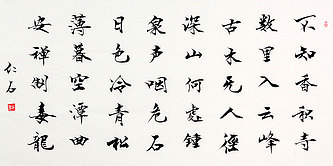 不知香积寺
数里入云峰
古木无人径
深山何處鐘
泉声咽危石
日色冷青松
薄暮空潭曲
安禅制毒龍
仁石